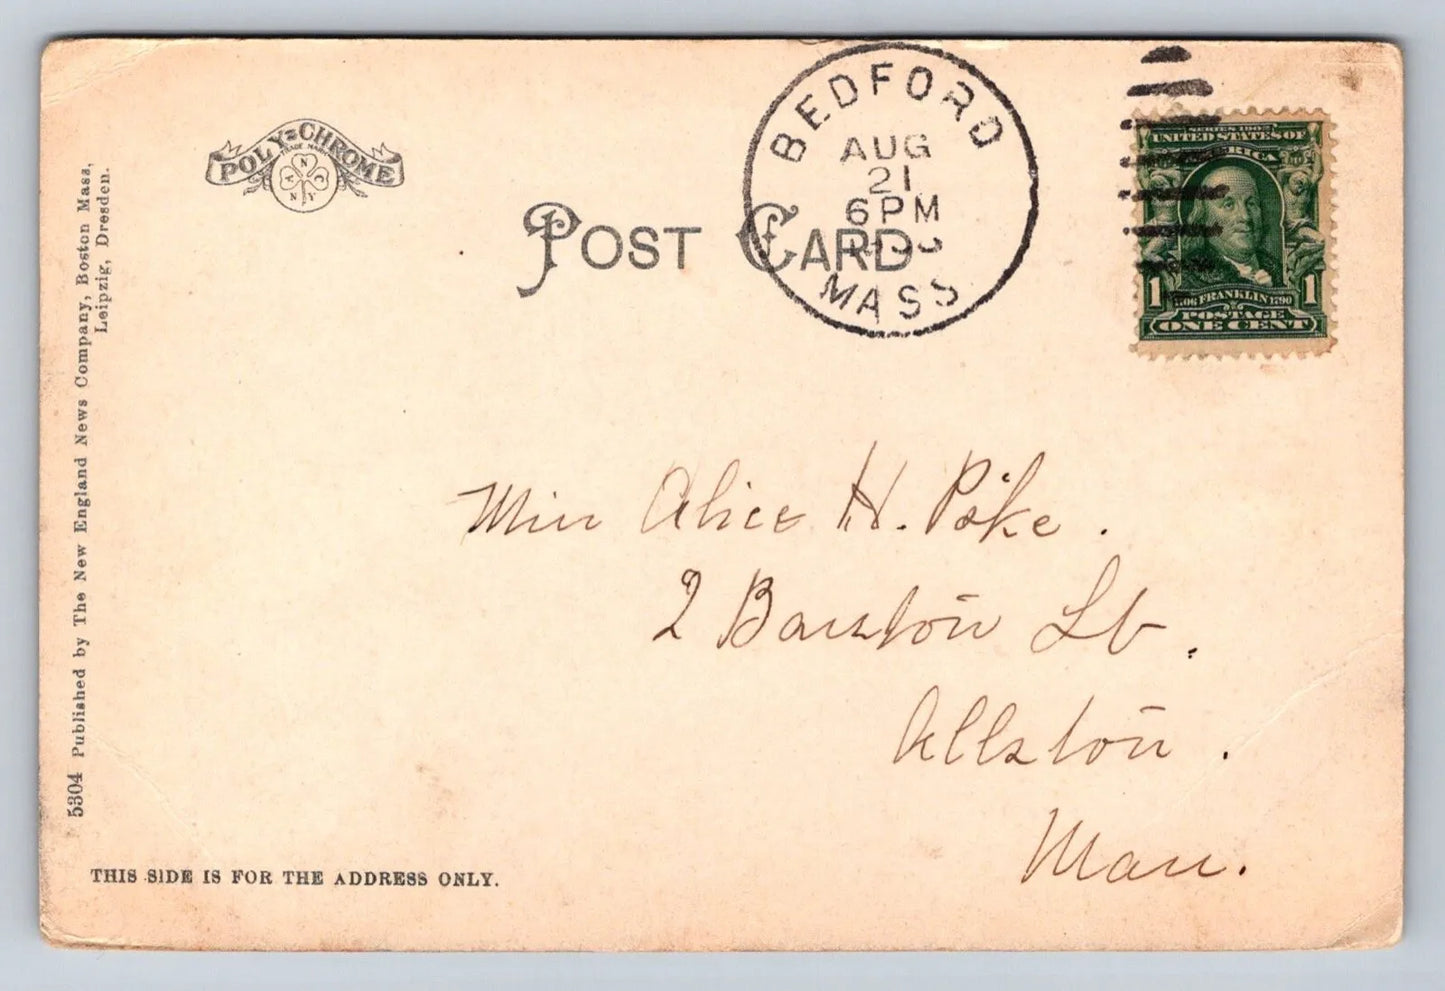 POLY-CHROME
TRADE MARK
N A C N Y
BEDFORD
AUG
21
6 PM
MASS
POST CARD
SERIES 1902
UNITED STATES OF
AMERICA
1 1706 FRANKLIN 1790 1
POSTAGE
ONE CENT
Miss Alice H. Pike.
2 St.
Allston.
Mass.
5304 Published by The New England News Company, Boston Mass,
Leipzig, Dresden.
THIS SIDE IS FOR THE ADDRESS ONLY.